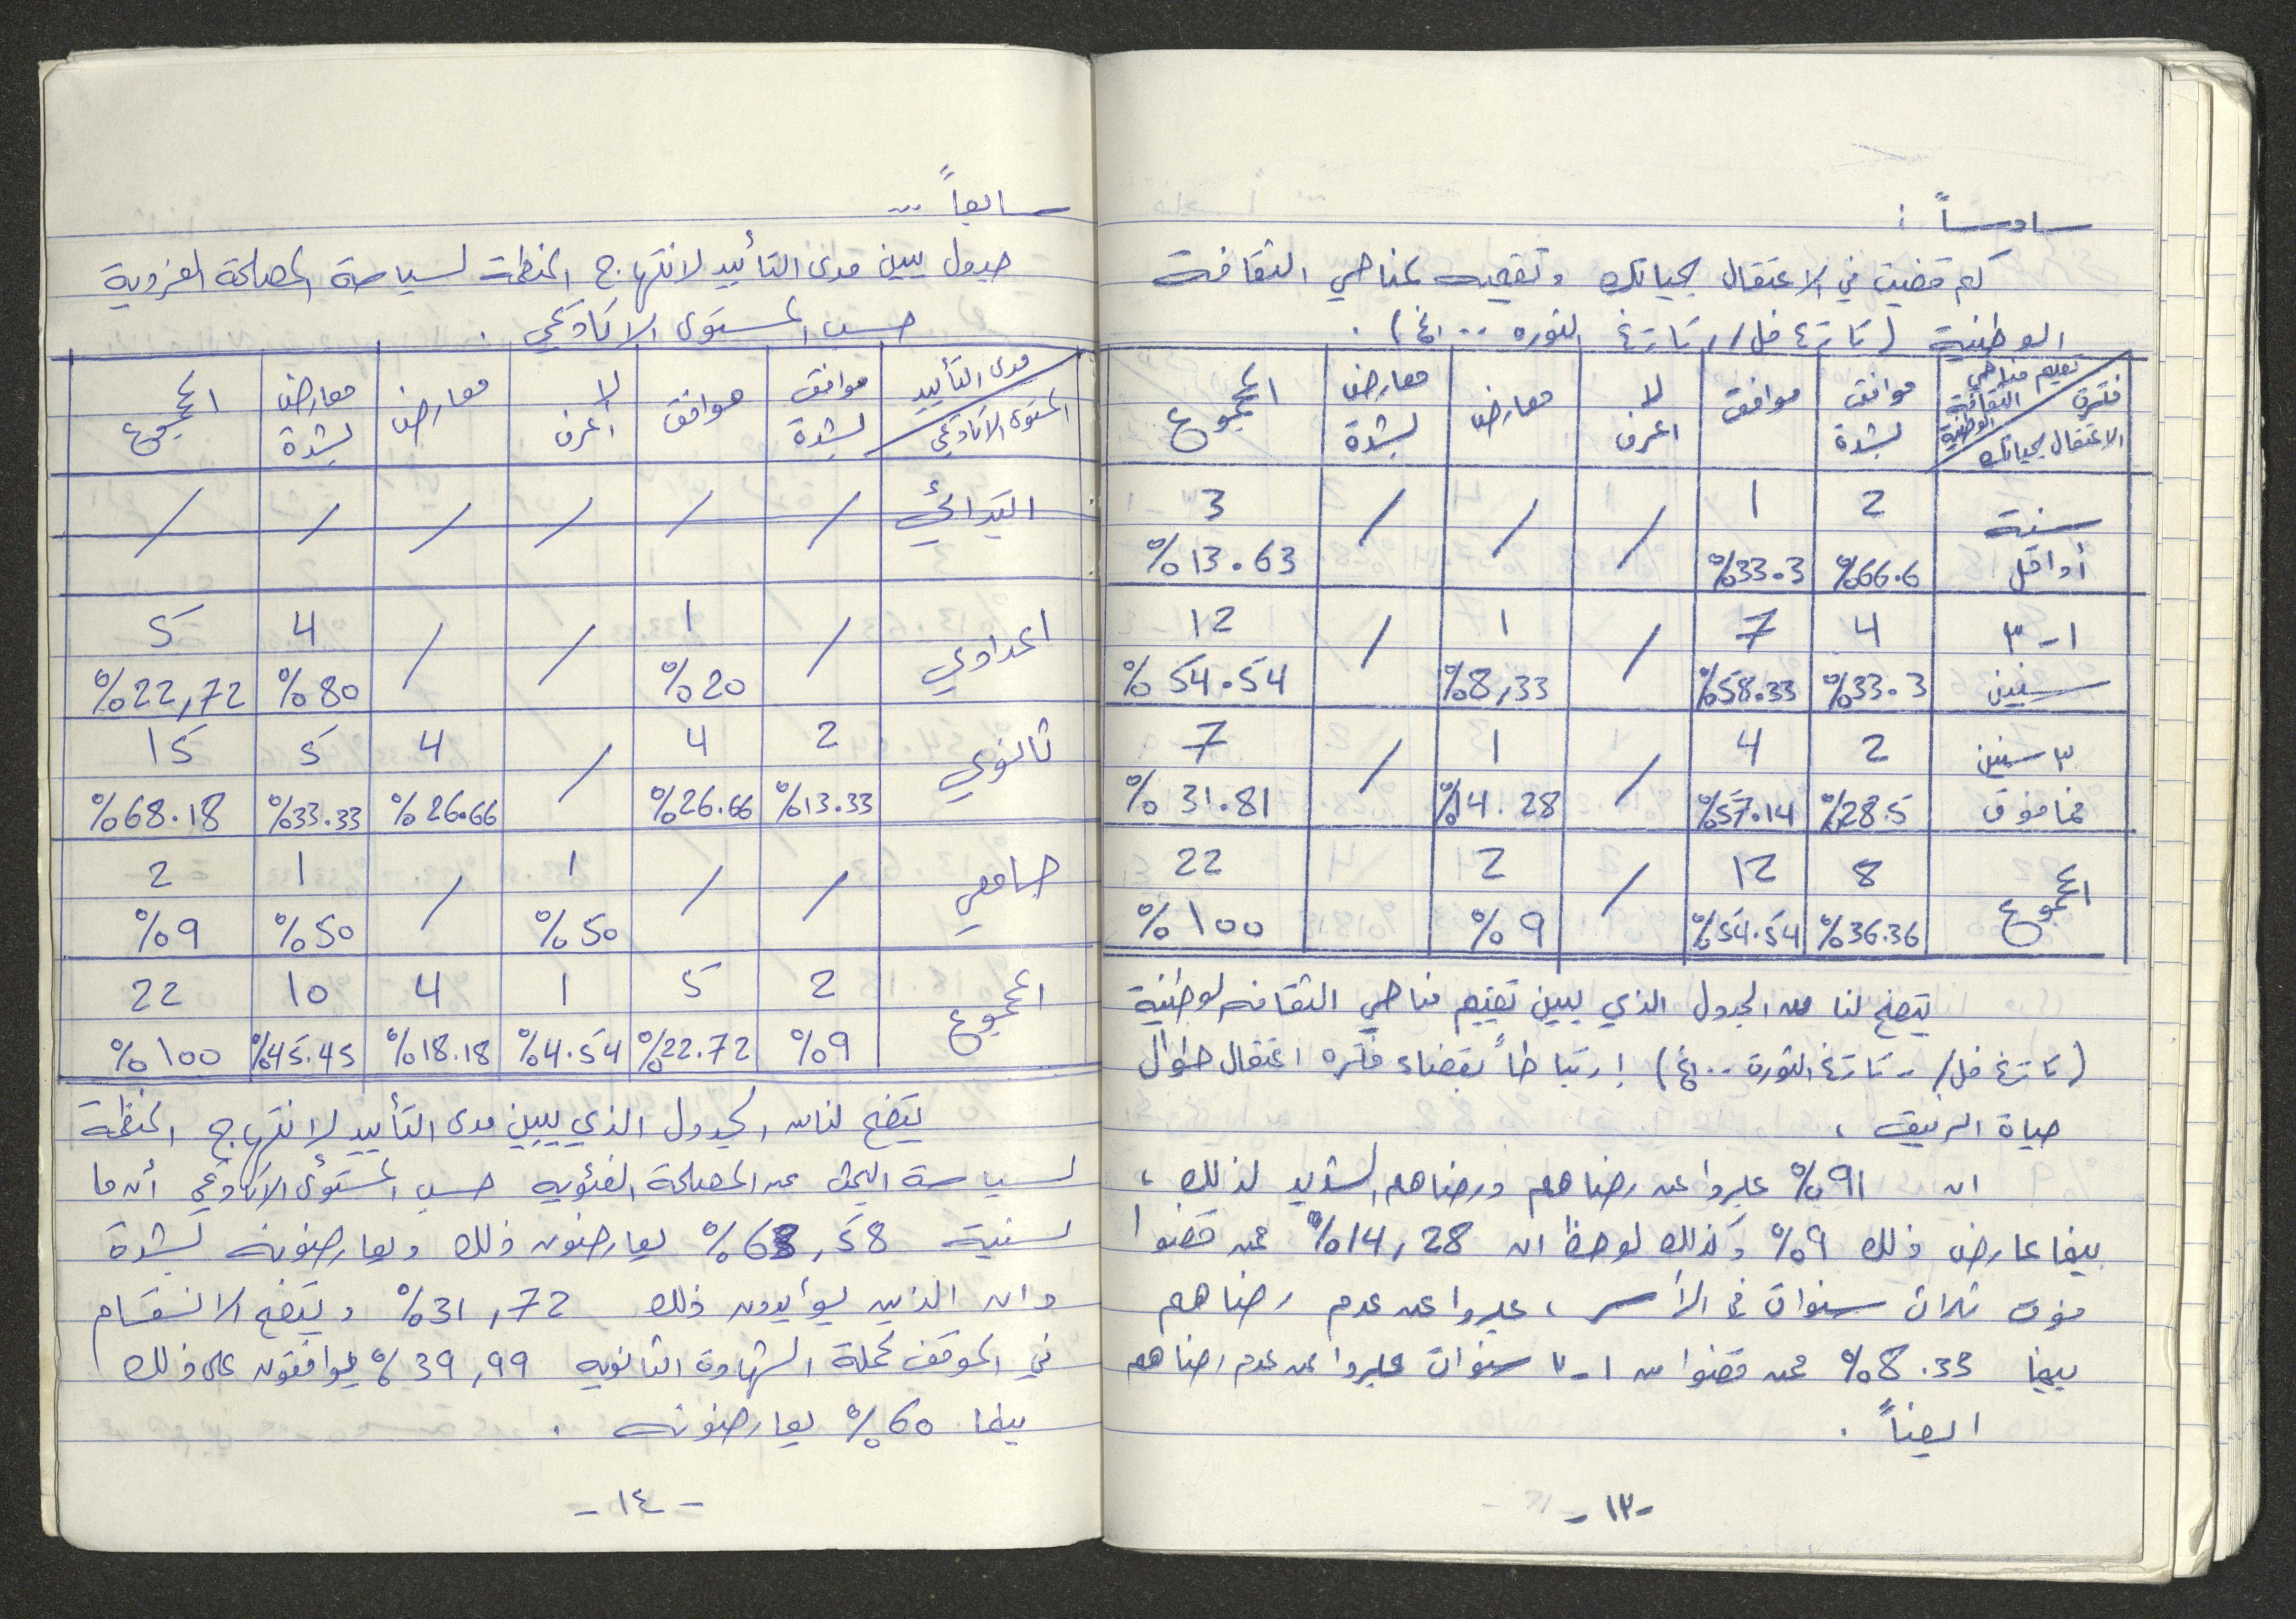 سادساً :
كم قضيت في الاعتقال بحياتك وتقييمه لمناحي الثقافة
الوطنية ( تاريخ فل// تاريخ الثوره .. الخ ) .
تقييم مناحي الثقافة الوطنية / فترة الاعتقال بحياتك | موافق بشدة | موافق | لا اعرف | معارض | معارض بشدة | المجموع
سنة أو اقل | 2 | 1 | / | / | / | 3
%66.6 | %33.3 | %13.63
١-٣ سنين | 4 | 7 | / | 1 | / | 12
%33.3 | %58.33 | %8,33 | %54.54
٣ سنين فما فوق | 2 | 4 | / | 1 | / | 7
%28.5 | %57.14 | %14.28 | %31.81
المجموع | 8 | 12 | / | 2 | 22
%36.36 | %54.54 | %9 | %100
يتضح لنا من الجدول الذي يبين تقييم مناحي الثقافه الوطنية
( تاريخ فل/ .. تاريخ الثورة .. الخ ) إرتباطاً بقضاء فتره اعتقال طوال
حياة الرفيق ،
ان 91% عبروا عن رضاهم ورضاهم الشديد لذلك ،
بينما عارض ذلك 9% وكذلك لوحظ ان 14,28% ممن قضوا
فوق ثلاث سنوات في الأسر ، عبروا عن عدم رضاهم
بينما 8.33% ممن قضوا من ١-٣ سنوات عبروا عن عدم رضاهم
ايضاً .
-١٣-
سابعاً ...
جدول يبين مدى التأييد لانتهاج المنظمة لسياسة المصلحة الفزوية
حسب المستوى الاكاديمي .
مدى التأييد / المستوى الاكاديمي | موافق بشدة | موافق | لا اعرف | معارض | معارض بشدة | المجموع
ابتدائي | / | / | / | / | / | /
اعدادي | / | 1 | / | / | 4 | 5
%20 | %80 | %22,72
ثانوي | 2 | 4 | / | 4 | 5 | 15
%13.33 | %26.66 | %26.66 | %33.33 | %68.18
جامعي | / | / | 1 | / | 1 | 2
%50 | %50 | %9
المجموع | 2 | 5 | 1 | 4 | 10 | 22
%9 | %22.72 | %4.54 | %18.18 | %45.45 | %100
يتضح لنا من الجدول الذي يبين مدى التأييد لانتهاج المنظمة
لسياسة البحث عن المصلحة الفئويه حسب المستوى الاكاديمي أن ما
نسبته 63,58% يعارضون ذلك ويعارضونه بشدة
وان الذين يؤيدون ذلك 31,72% ويتضح الانقسام
في الموقف لحملة الشهادة الثانويه 39,99% يوافقون على ذلك
بينما 60% يعارضونه .
-١٤-